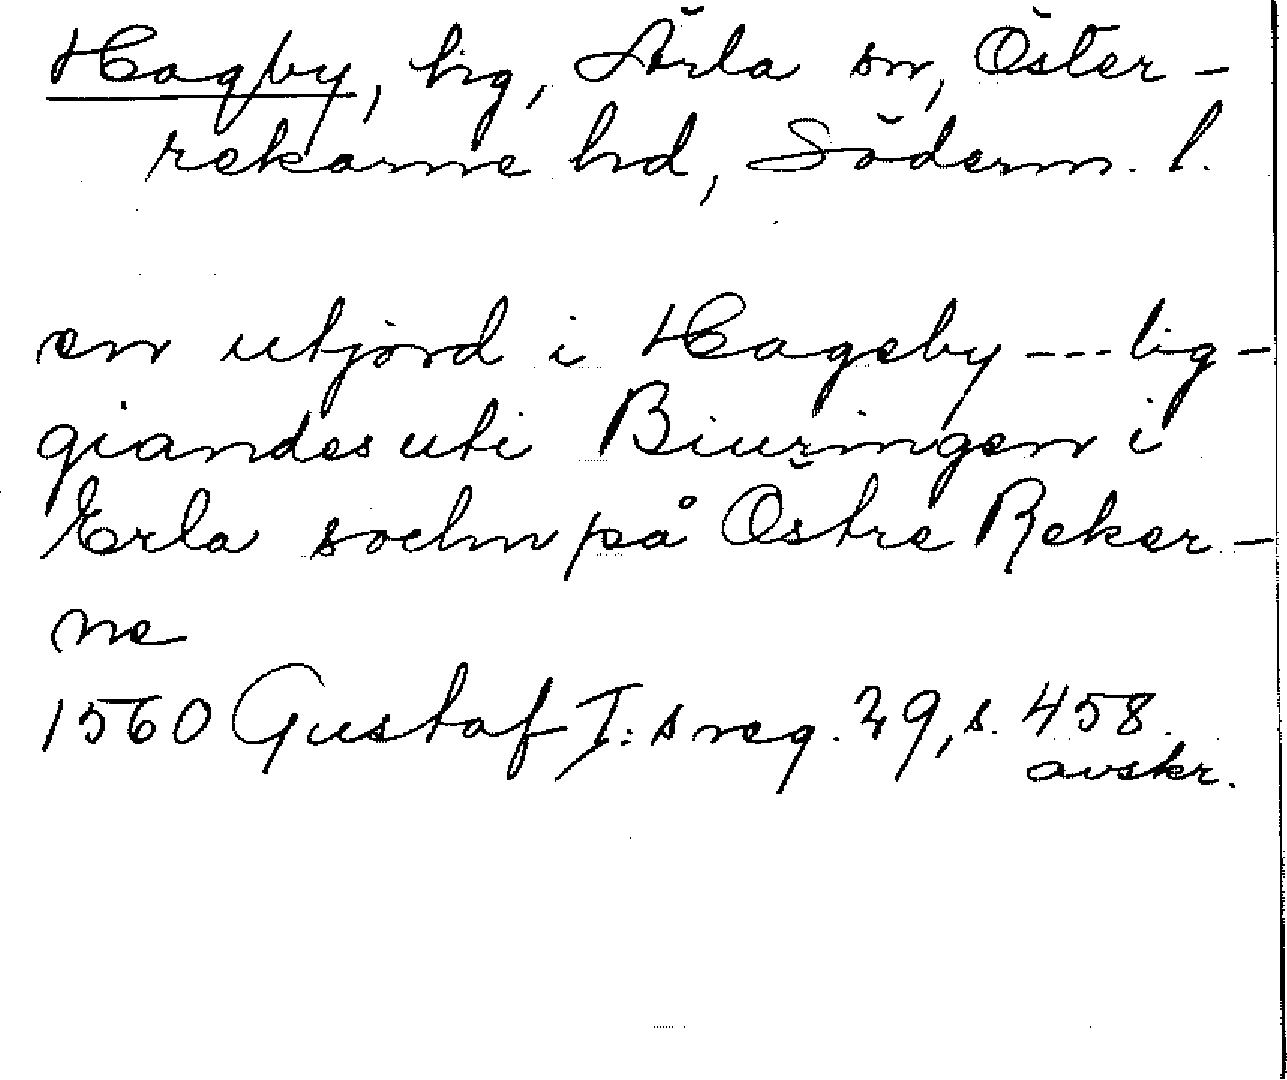 Hagby, hg, Ärla sn, Öster-
rekarne hd, Söderm. l.
en utjord i Hageby --- lig-
giandes uti Biuringen i
Erla sochn på Östre Reker-
ne
1560 Gustaf I:s reg. 29, s. 458.
avskr.